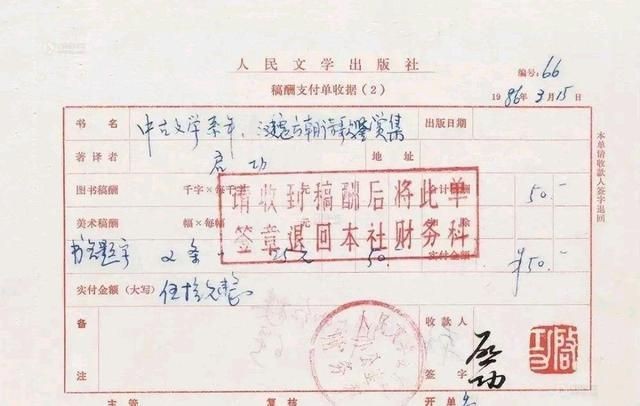 人民文学出版社
稿酬支付单收据（2）
编号：66
1986年3月15日
书名 中古文学系年、汉魏六朝诗歌鉴赏集 出版日期
著译者 启功 地址
图书稿酬 千字×每千字 元 合计稿酬 50.-
美术稿酬 幅×每幅 元 扣除
书名题字 2条 25元 50.- 实付金额 ¥50.-
实付金额（大写） 伍拾元整
备注
收款人签字 启功
主管 复核 开单
本单请收款人签字退回
请收到稿酬后将此单
签章退回本社财务科